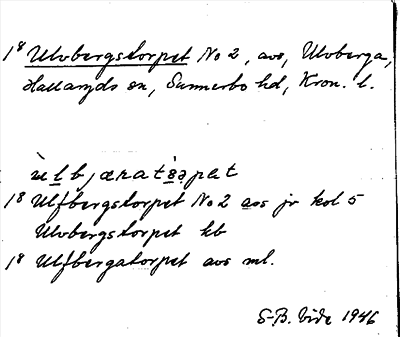 1⁸ Ulvbergstorpet No 2, avs, Ulvberga,
Hallaryds sn, Sunnerbo hd, Kron. l.
1⁸ Ulfbergstorpet No 2 avs jr kol 5
Ulvbergstorpet kb
1⁸ Ulfbergatorpet avs ml.
S-B. Vide 1946